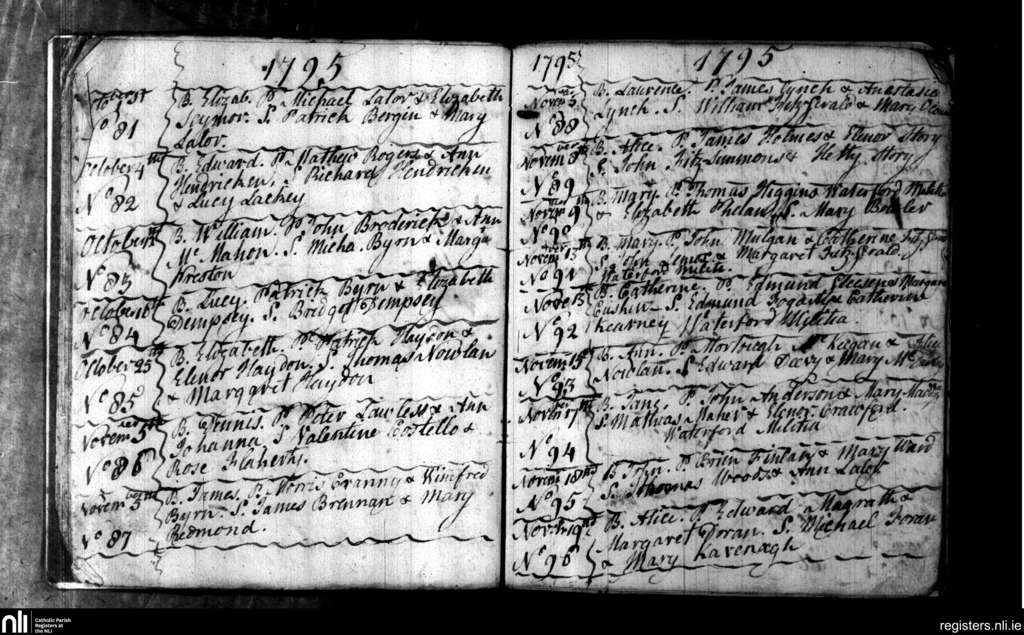 1795
B. Elizab. P. Michael Lalor & Elizabeth
No 81 Seymor. S. Patrick Bergin & Mary
Lalor.
October 4th B. Edward. P. Mathew Rogers & Ann
Hendricken. S. Richard Hendricken
No 82 & Lucy Lackey
October B. William. P. John Broderick & Ann
Mc Mahon. S. Micha. Byrn & Marga
No 83 Preston
October B. Lucy. Patrick Byrn & Elizabeth
Dempsey. S. Bridget Dempsey
No 84
October 25th B. Elizabeth. P. Patrick Haydon &
Elenor Haydon. S. Thomas Nowlan
No 85 & Margaret Haydon
Novem 5 B. P. Peter Lawless & Ann
Johanna S. Valentine Costello &
No 86 Rose Flaherty.
Novem 5 B. James. P. Morris Granny & Winifred
Byrn. S. James Brennan & Mary
No 87 Redmond.
1795 1795
Novem 5 B. Laurence. P. James Lynch & Anastasia
No 88 Lynch. S. William Fitzgerald & Mary
Novem 8 B. Alice. P. James Holmes & Elenor Story
No 89 S. John Fitz Simmons & Hetty Story
Novem 9 B. Mary. P. Thomas Higgins Waterford
No 90 & Elizabeth Phelan. S. Mary Bowler
Novem 13 B. Mary. P. John Mulgan & Catherine
S. John & Margaret Fitzgerald
No 91 Waterford Militia.
Nove 13 B. Catherine. P. Edmund Gleeson & Margaret
S. Edmund Fogarty & Catherine
No 92 Kearney Waterford Militia.
Novem 15 B. Ann. P. Mortough Mc Keegan &
No 93 Nowlan. S. Edward & Mary Mc
Novem 17 B. Jane. P. John Anderson & Mary
S. Mathias Maher & Elenor Crawford.
No 94 Waterford Militia
Novem 18th B. John. P. Brien Finlay & Mary Ward
No 95 S. Thomas Woods & Ann Lalor
Novem 19th B. Alice. P. Edward Magrath &
Margaret Doran. S. Michael Doran
No 96 & Mary Kavenagh
nli Catholic Parish
Registers at
the NLI
registers.nli.ie